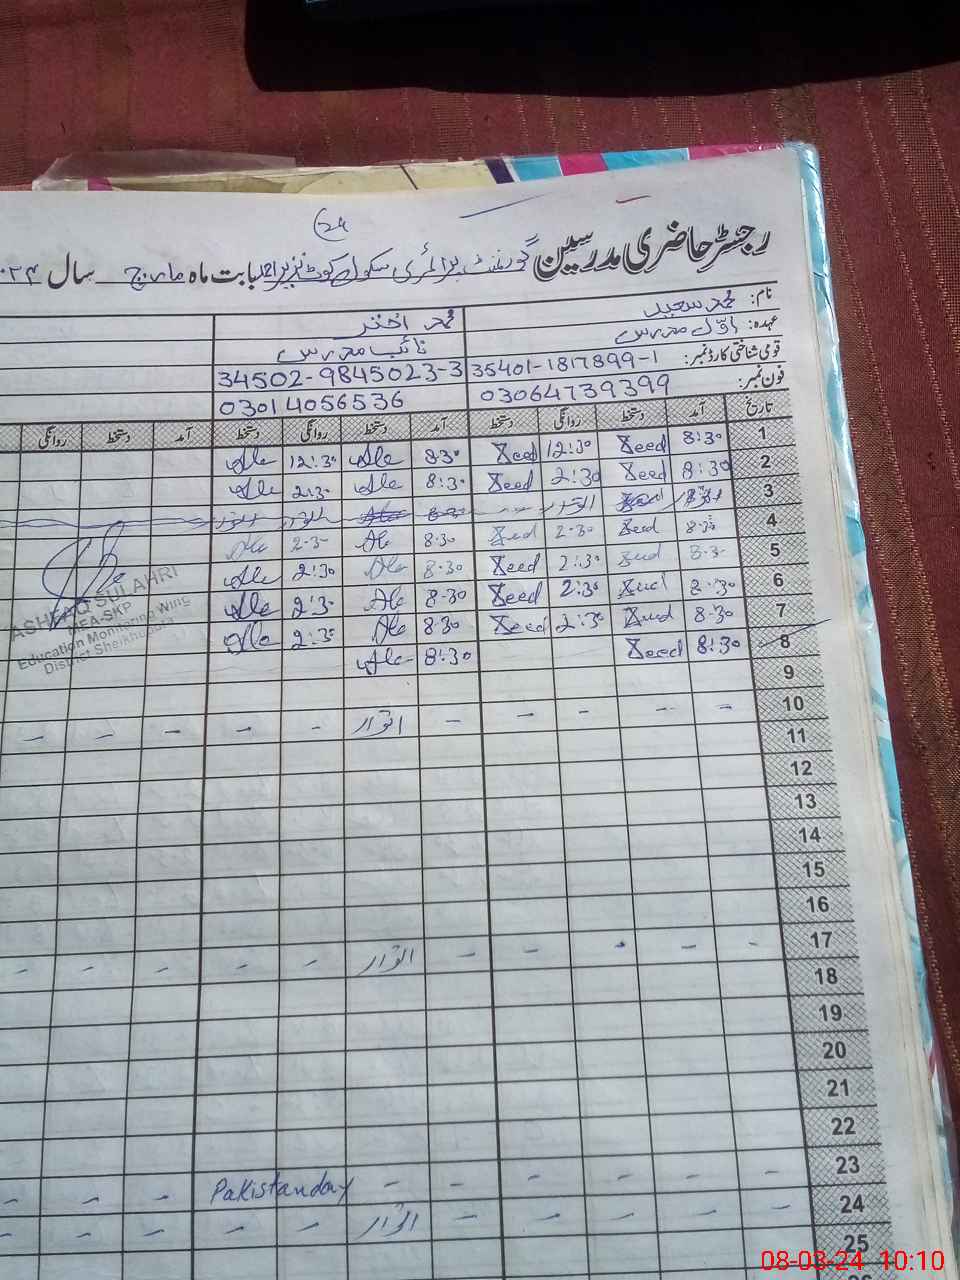 24
رجسٹر حاضری مدرسین گورنمنٹ پرائمری سکول کوٹ نذیر احمد بابت ماہ مارچ سال
نام: محمد سعید محمد اختر
عہدہ: اوّل مدرس نائب مدرس
قومی شناختی کارڈ نمبر: 35401-1817899-1 34502-9845023-3
فون نمبر: 03064739399 03014056536
تاریخ آمد دستخط روانگی دستخط آمد دستخط روانگی دستخط آمد دستخط روانگی
1 8:30 Saeed 12:30 Saeed 8:30 12:30
2 8:30 Saeed 2:30 Saeed 8:30 2:30
3 اتوار اتوار اتوار اتوار
4 8:30 2:30 8:30 2:30
5 8:30 2:30 Saeed 8:30 2:30
6 8:30 2:30 Saeed 8:30 2:30
7 8:30 2:30 Saeed 8:30 2:30
8 8:30 Saeed 8:30
ASHFAQ SULAHRI
MEA-SKP
Education Monitoring Wing
District Sheikhupura
9
10 - - - - - اتوار - - - - -
11
12
13
14
15
16
17 - - - - - اتوار - - - - -
18
19
20
21
22
23 - - - - - - Pakistanday - - -
24 - - - - - اتوار - - - - -
25
08-03-24 10:10